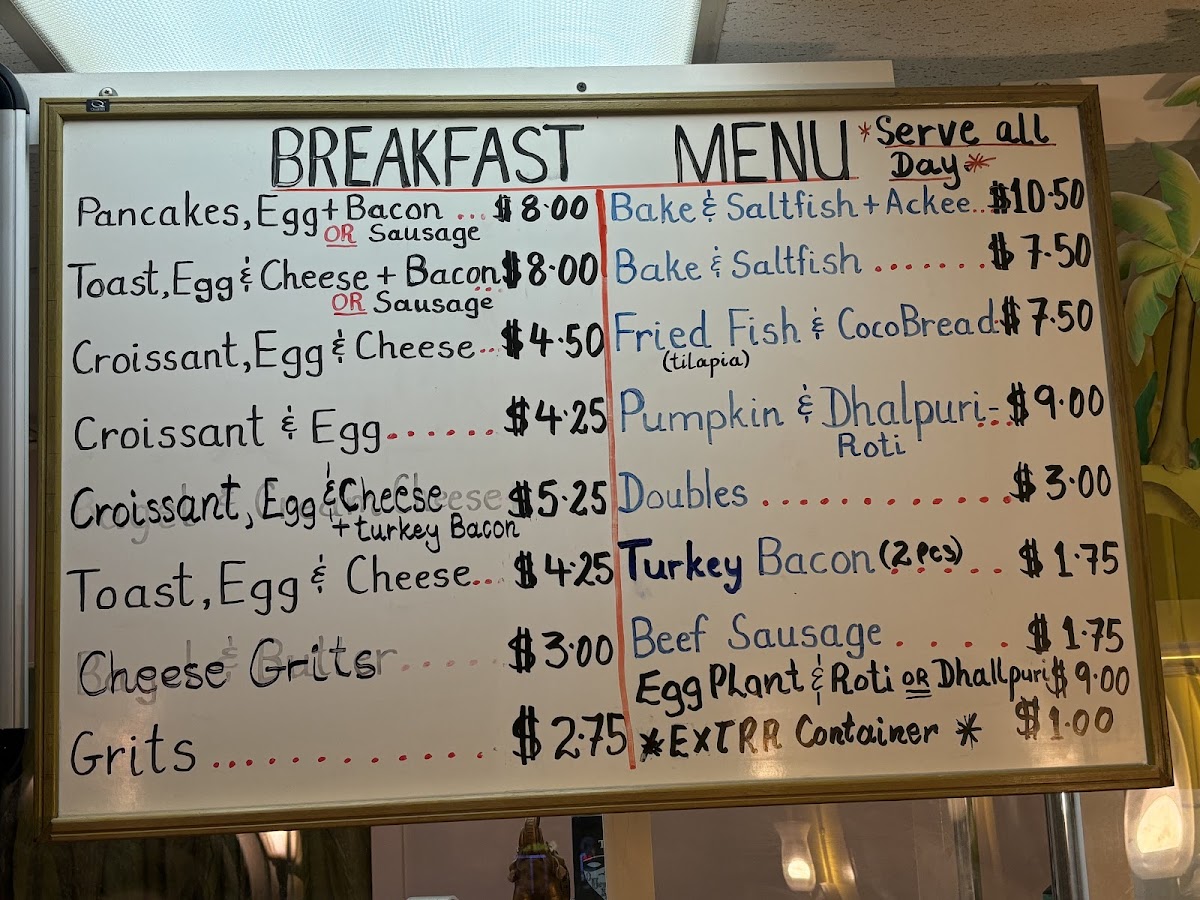 BREAKFAST MENU *Serve all Day*
Pancakes, Egg + Bacon ... $8.00
OR Sausage
Toast, Egg & Cheese + Bacon.. $8.00
OR Sausage
Croissant, Egg & Cheese.. $4.50
Croissant & Egg....... $4.25
Croissant, Egg & Cheese $5.25
+ turkey Bacon
Toast, Egg & Cheese... $4.25
Cheese Grits ..... $3.00
Grits ............ $2.75
Bake & Saltfish + Ackee.. $10.50
Bake & Saltfish ....... $7.50
Fried Fish & CocoBread. $7.50
(tilapia)
Pumpkin & Dhalpuri-... $9.00
Roti
Doubles ............. $3.00
Turkey Bacon (2 pcs) .... $1.75
Beef Sausage . . . . . $1.75
Egg Plant & Roti OR Dhallpuri $9.00
*EXTRA Container * $1.00